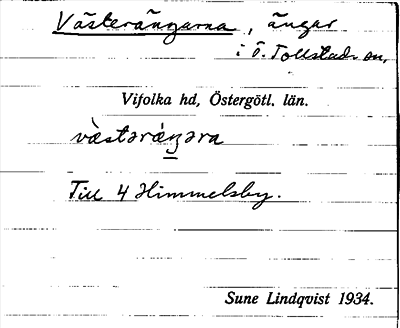 Västerängarna, ängar
i Ö. Tollstads sn,
Vifolka hd, Östergötl. län.
væ̀stərǽŋəra
Till 4 Himmelsby.
Sune Lindqvist 1934.